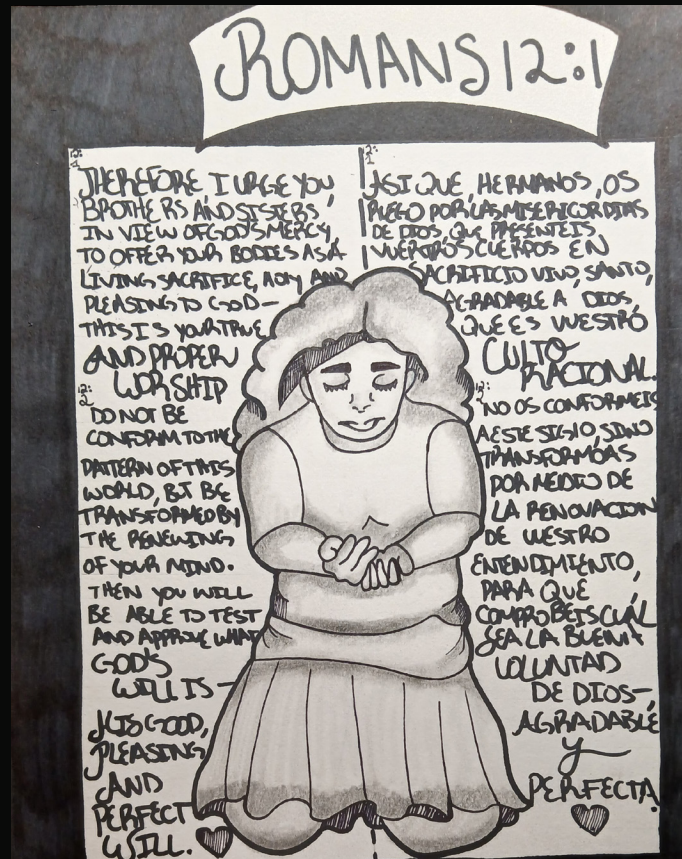 ROMANS 12:1
12:1
THEREFORE I URGE YOU
BROTHERS AND SISTERS,
IN VIEW OF GOD'S MERCY,
TO OFFER YOUR BODIES AS A
LIVING SACRIFICE, HOLY AND
PLEASING TO GOD—
THIS IS YOUR TRUE
AND PROPER
WORSHIP
12:2
DO NOT BE
CONFORM TO THE
PATTERN OF THIS
WORLD, BT BE
TRANSFORMED BY
THE RENEWING
OF YOUR MIND.
THEN YOU WILL
BE ABLE TO TEST
AND APPROVE WHAT
GOD'S
WILL IS—
HIS GOOD,
PLEASING
AND
PERFECT
WILL.
12:1
ASI QUE, HERMANOS, OS
RUEGO POR LAS MISERICORDIAS
DE DIOS, QUE PRESENTEIS
VUESTROS CUERPOS EN
SACRIFICIO VIVO, SANTO,
AGRADABLE A DIOS,
QUE ES VUESTRO
CULTO
RACIONAL.
12:2
NO OS CONFORMEIS
A ESTE SIGLO, SINO
TRANSFORMAOS
POR MEDIO DE
LA RENOVACION
DE VUESTRO
ENTENDIMIENTO,
PARA QUE
COMPROBEIS CUAL
SEA LA BUENA
VOLUNTAD
DE DIOS—,
AGRADABLE
Y
PERFECTA.